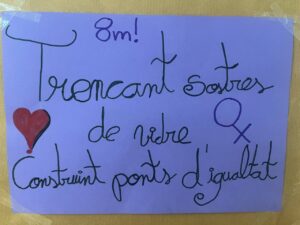 8m!
Trencant sostres
de vidre
Construint ponts d'igualtat